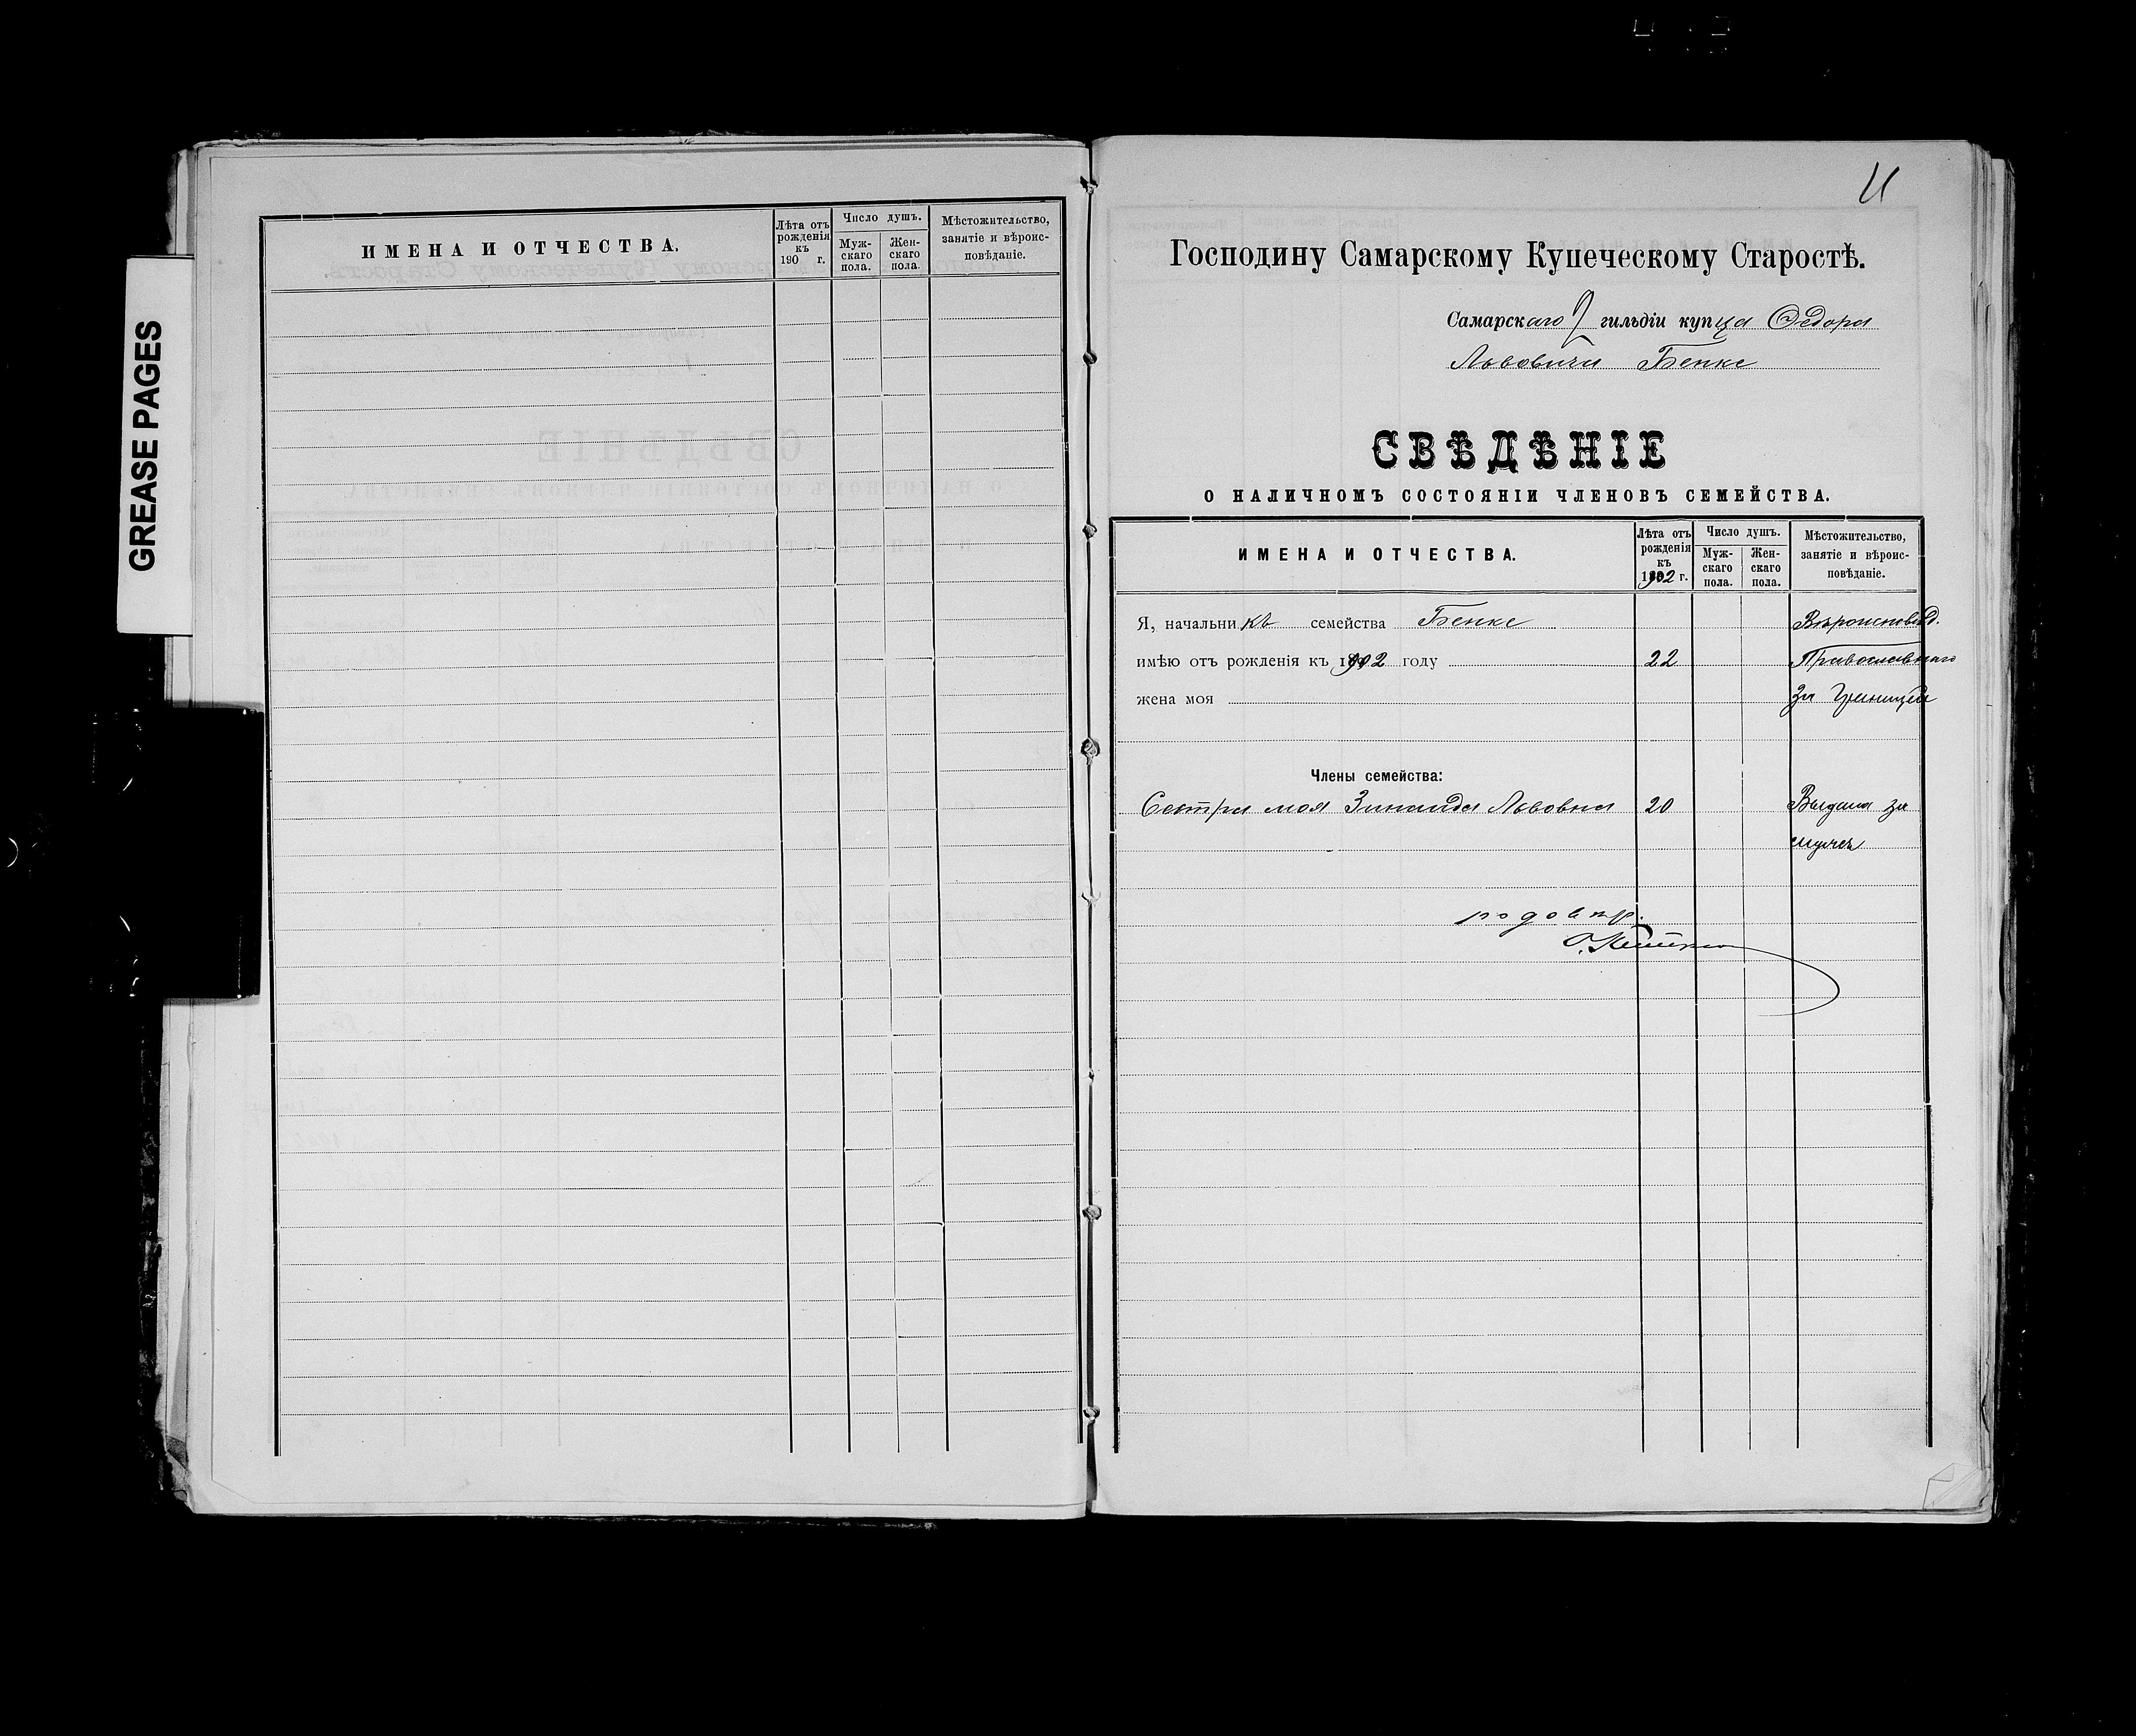 GREASE PAGES
ИМЕНА И ОТЧЕСТВА.
Лѣта отъ рожденія къ 190 г.
Число душъ.
Муж-скаго пола.
Жен-скаго пола.
Мѣстожительство, занятіе и вѣроис-повѣданіе.
Господину Самарскому Купеческому Старостѣ.
Самарскаго 2 гильдіи купца Федора
Львовича Бенке
СВѢДѢНІЕ
О НАЛИЧНОМЪ СОСТОЯНІИ ЧЛЕНОВЪ СЕМЕЙСТВА.
ИМЕНА И ОТЧЕСТВА.
Лѣта отъ рожденія къ 1902 г.
Число душъ.
Муж-скаго пола.
Жен-скаго пола.
Мѣстожительство, занятіе и вѣроис-повѣданіе.
Я, начальникъ семейства Бенке Вѣроисповѣд.
имѣю отъ рожденія къ 1902 году 22 Православнаго
жена моя За Границей
Члены семейства:
Сестра моя Зинаида Львовна 20 Выдана за
мужъ